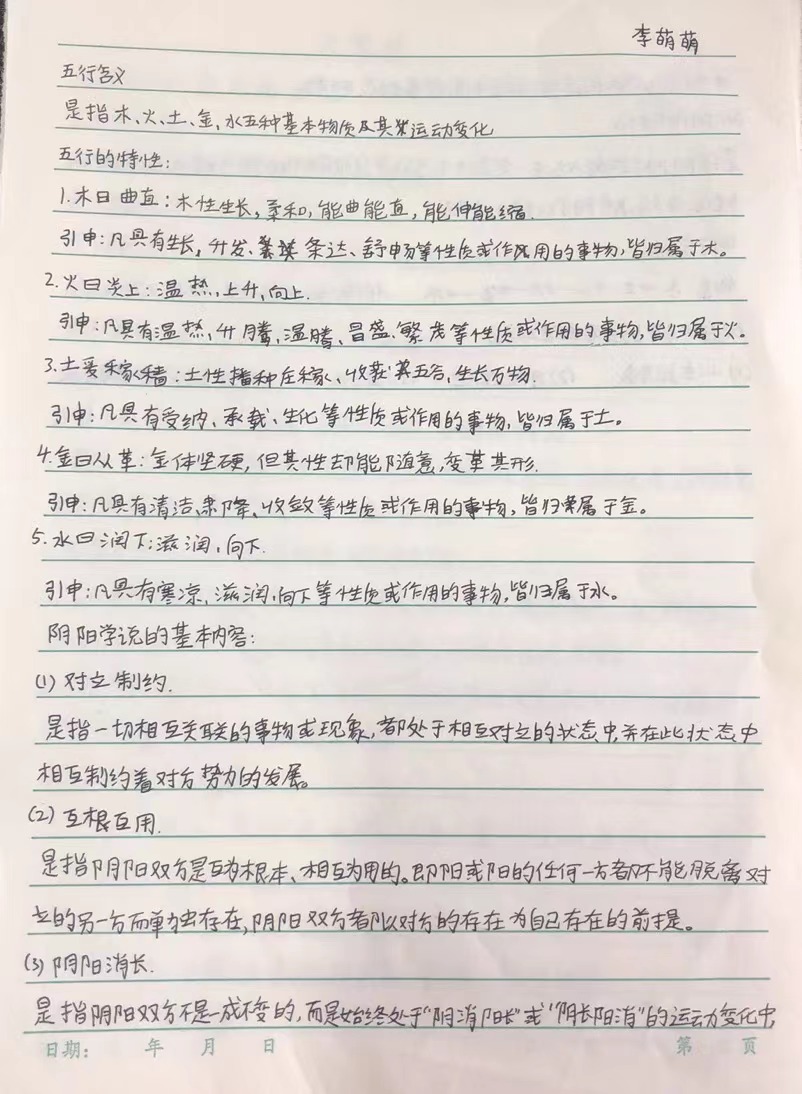 李萌萌
五行含义
是指木、火、土、金、水五种基本物质及其运动变化
五行的特性:
1.木曰曲直:木性生长,柔和,能曲能直,能伸能缩.
引申:凡具有生长,升发、条达、舒畅等性质或作用的事物,皆归属于木。
2.火曰炎上:温热,上升,向上.
引申:凡具有温热,升腾,温腾、昌盛、繁茂等性质或作用的事物,皆归属于火。
3.土爰稼穑:土性播种庄稼、收获五谷,生长万物.
引申:凡具有受纳、承载、生化等性质或作用的事物,皆归属于土。
4.金曰从革:金体坚硬,但其性却能随意,变革其形.
引申:凡具有清洁、肃降、收敛等性质或作用的事物,皆归属于金。
5.水曰润下:滋润,向下.
引申:凡具有寒凉、滋润,向下等性质或作用的事物,皆归属于水。
阴阳学说的基本内容:
(1)对立制约.
是指一切相互关联的事物或现象,都处于相互对立的状态中,并在此状态中
相互制约着对方势力的发展。
(2)互根互用.
是指阴阳双方是互为根本、相互为用的。即阳或阳的任何一方都不能脱离对
立的另一方而单独存在,阴阳双方都以对方的存在为自己存在的前提。
(3)阴阳消长.
是指阴阳双方不是一成不变的,而是始终处于“阴消阳长”或“阴长阳消”的运动变化中,
日期: 年 月 日 第 页